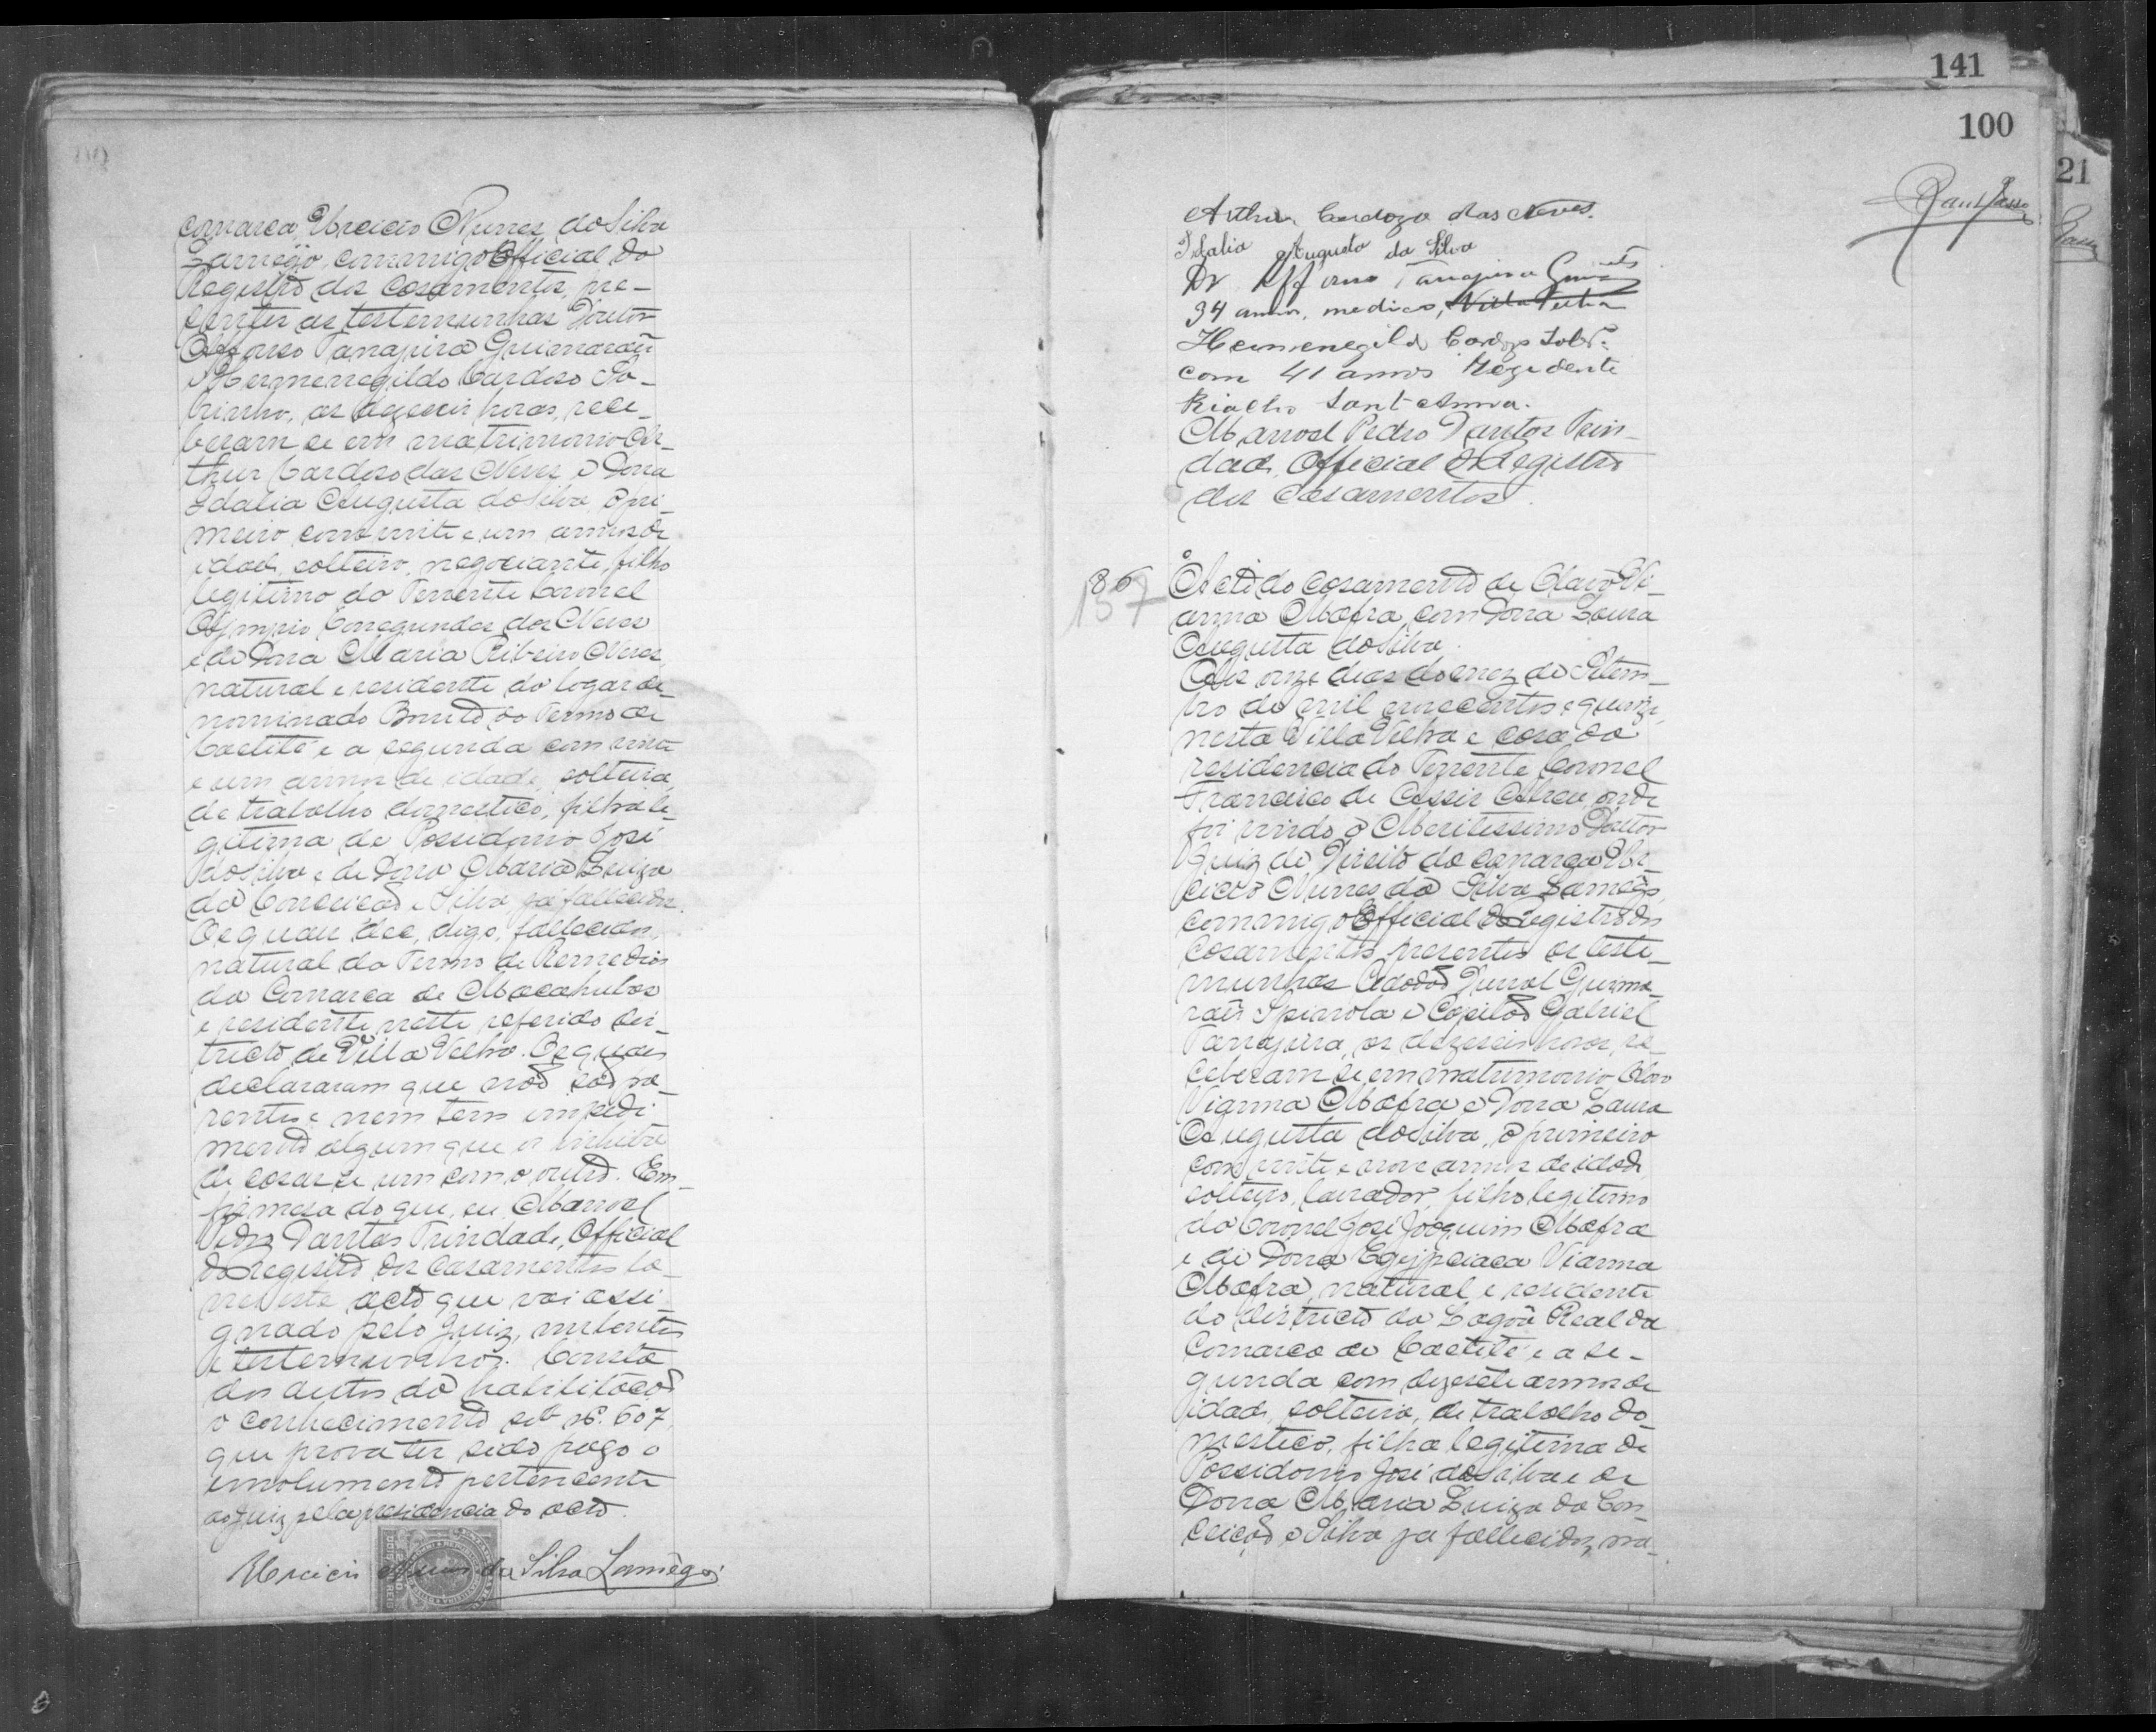 comarca, Urcicio Nunes da Silva
Lamêgo, commigo Official do
Registro dos Casamentos, pre-
sentes as testemunhas Doutor
Affonso Tanajura Guimarães
e Hermenegildo Cardoso So-
brinho, as dezeseis horas, rece-
beram se em matrimonio Ar-
thur Cardoso das Neves e Dona
Idalia Augusta da Silva, o pri-
meiro com vinte e um annos de
idade, solteiro, negociante, filho
legitimo do Tenente Coronel
Olympio Cunegundes das Neves
e de Dona Maria Ribeiro Neves,
natural e residente do logar de-
nominado Bonito do Termo de
Caetité e a segunda com vinte
e um annos de idade, solteira,
de trabalho domestico, filha le-
gitima de Possidonio José
da Silva e de Dona Maria Luiza
da Conceicão e Silva já fallecidos.
Os quaes dec, digo, fallecidos,
natural do Termo de Remedios
da Comarca de Macahubas
e residente neste referido dis-
tricto de Villa Velha. Os quaes
declararam que não são pa-
rentes e nem tem impedi
mento algum que os inhiba
de casar se um com o outro. Em
firmesa do que, eu Manoel
Pedro Dantas Trindade, Official
do Registro dos Casamentos la-
vrei este acto que vai assi-
gnado pelo Juiz, nubentes
e testemunhas. Consta
dos autos da habilitacão
o conhecimento sob nº. 607,
que prova ter sido pago o
emolumento pertencente
ao Juiz pela presidencia do acto.
Urcicio Nunes da Silva Lamêgo
141
100
21
Arthur Cardozo das Neves.
Idalia Augusta da Silva
Dr Affonso Tanajura Guimes
34 annos, medico, Villa Velha
Hermenegildo Cardozo Sobrº
com 41 annos Rezidente
Riacho Sant Anna.
Manoel Pedro Dantas Trin-
dade, Official do Registro
dos Casamentos.
86
157
Acto do casamento de Olavo Vi-
anna Mafra com Dona Laura
Augusta da Silva.
Aos onze dias do mez de Setem-
bro de mil novecentos e quinze,
nesta Villa Velha e casa da
residencia do Tenente Coronel
Francisco de Assis Abreu, onde
foi vindo o Meritissimo Doutor
Juiz de Direito da comarca Ur-
cicio Nunes da Silva Lamêgo,
commigo Official do Registro dos
Casamentos, presentes as teste-
munhas Durval Guima-
rães Spinola e Capitão Gabriel
Tanajura, as dezeseis horas, re-
ceberam se em matrimonio Olavo
Vianna Mafra e Dona Laura
Augusta da Silva, o primeiro
com vinte e nove annos de idade,
solteiro, lavrador, filho legitimo
do Coronel José Joaquim Mafra
e de Dona Egypciaca Vianna
Mafra, natural e residente
do districto da Lagôa Real da
Comarca de Caetité e a se-
gunda com dezesete annos de
idade, solteira, de trabalho do-
mestico, filha legitima de
Possidonio José da Silva e de
Dona Maria Luiza da Con-
ceicão e Silva já fallecidos, na-